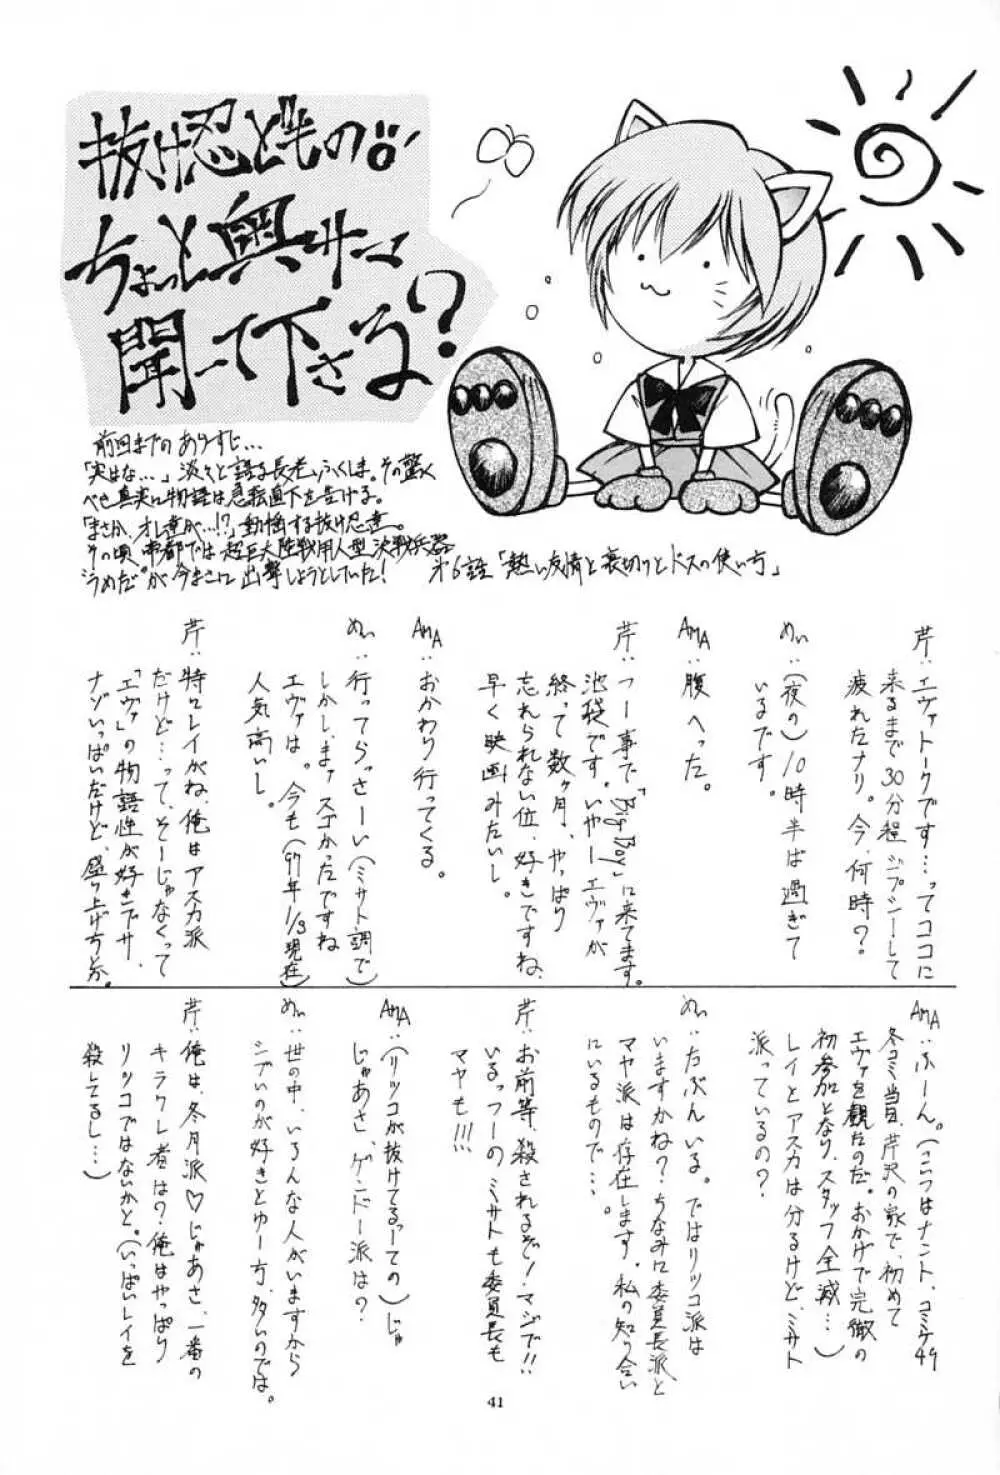 抜け忍どもの
ちょっと奥サマ
聞いて下さる?
前回までのあらすじ…
「実はな…」淡々と語る長老、ふくしま。その驚く
べき真実に物語は急転直下を告げる。
「まさか、オレ達が…!?」動揺する抜け忍達。
その頃、帝都では超巨大陸戦用人型決戦兵器
"うめだ"が今まさに出撃しようとしていた!
オ6話「熱い友情と裏切りとドスの使い方」
芹:エヴァトークです…ってココに
来るまで30分程ジプシーして
疲れたナリ。今、何時?
めい:(夜の)10時半は過ぎて
いるです。
AMA:腹へった。
芹:つー事で「Big Boy」に来てます。
池袋です。いやーエヴァが
終って数ヶ月、やっぱり
忘れられない位、好きですね、
早く映画みたいし。
AMA:おかわり行ってくる。
めい:行ってらっさーい(ミサト調で)
しかし、まァスゴかったですね
エヴァは。今も(97年1/3現在)
人気高いし。
芹:特にレイがね、俺はアスカ派
だけど…って、そーじゃなくって
「エヴァ」の物語性が好きでサ、
ナゾいっぱいだけど、盛り上げ方とか。
AMA:ふーん。(こいつはナント、コミケ49
冬コミ当日、芹沢の家で、初めて
エヴァを観たのだ。おかげで完徹の
初参加となり、スタッフ全滅…)
レイとアスカは分るけど、ミサト
派っているの?
めい:たぶんいる。ではリツコ派は
いますかね?ちなみに委員長派と
マヤ派は存在します。私の知り合い
にいるもので…。
芹:お前等、殺されるぞ!マジで!!
いるっつーのミサトも委員長も
マヤも!!!
AMA:(リツコが抜けてるっての)じゃ
じゃあさ、ゲンドー派は?
めい:世の中、いろんな人がいますから
シブいのが好きとゆー方、多いのでは。
芹:俺は、冬月派♡じゃあさ、一番の
キラワレ者は?俺はやっぱり
リツコではないかと。(いっぱいレイを
殺してるし…)
41